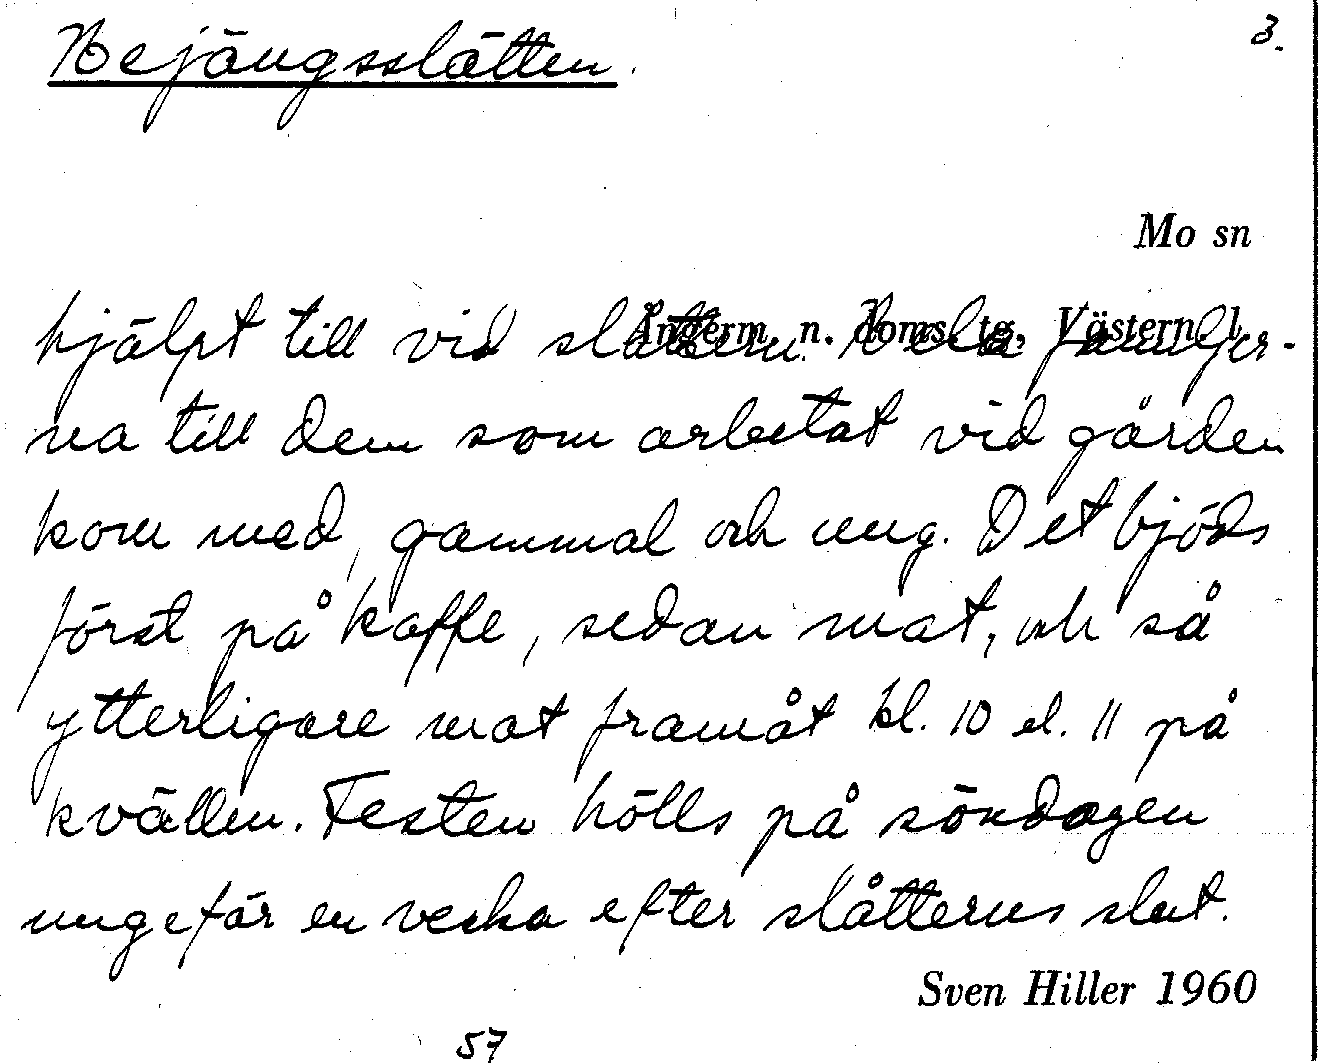 Hejängsslätten.
3.
Mo sn
Ångerm. n. doms. tg. Västernl. l.
hjälpt till vid slåttern. Hela familjer-
na till dem som arbetat vid gården
kom med, gammal och ung. Det bjöds
först på kaffe, sedan mat, och så
ytterligare mat framåt kl. 10 el. 11 på
kvällen. Festen hölls på söndagen
ungefär en vecka efter slåtterns slut.
Sven Hiller 1960
57